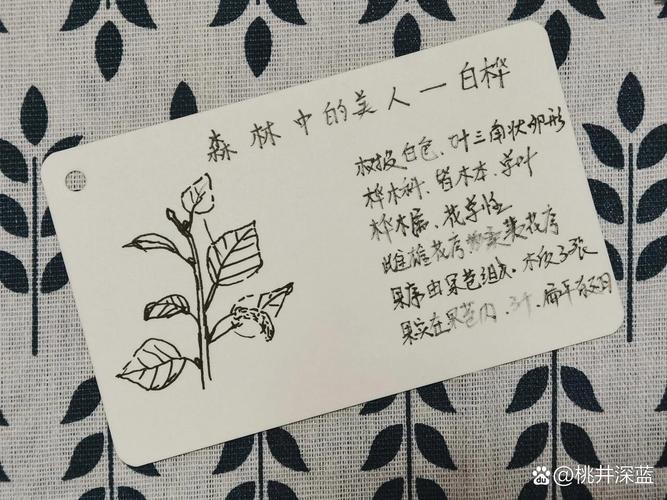 森林中的美人一白桦
树皮白色、叶三角状卵形
桦木科、皆木本、单叶
桦木属、花单性
雌雄花序 柔荑花序
果序由果苞组成、木质3裂
果实在果苞内、 扁平
桃井深蓝